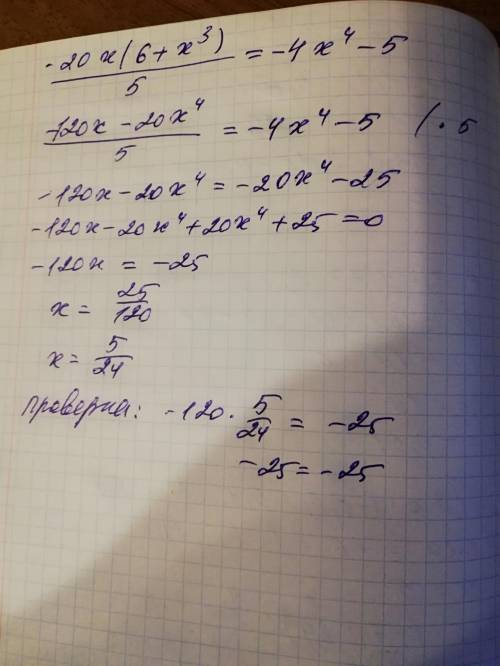 -20x(6+x³)/5 = -4x⁴-5
-120x-20x⁴/5 = -4x⁴-5 /·5
-120x-20x⁴=-20x⁴-25
-120x-20x⁴+20x⁴+25=0
-120x = -25
x= 25/120
x= 5/24
проверка: -120·5/24 = -25
-25=-25